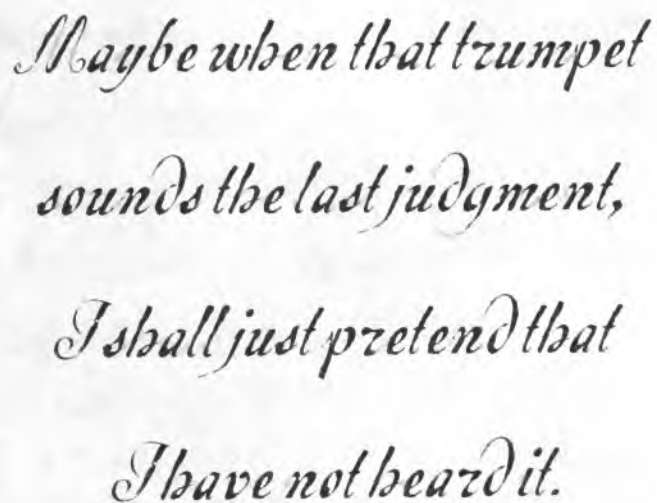 Maybe when that trumpet
sounds the last judgment,
I shall just pretend that
I have not heard it.